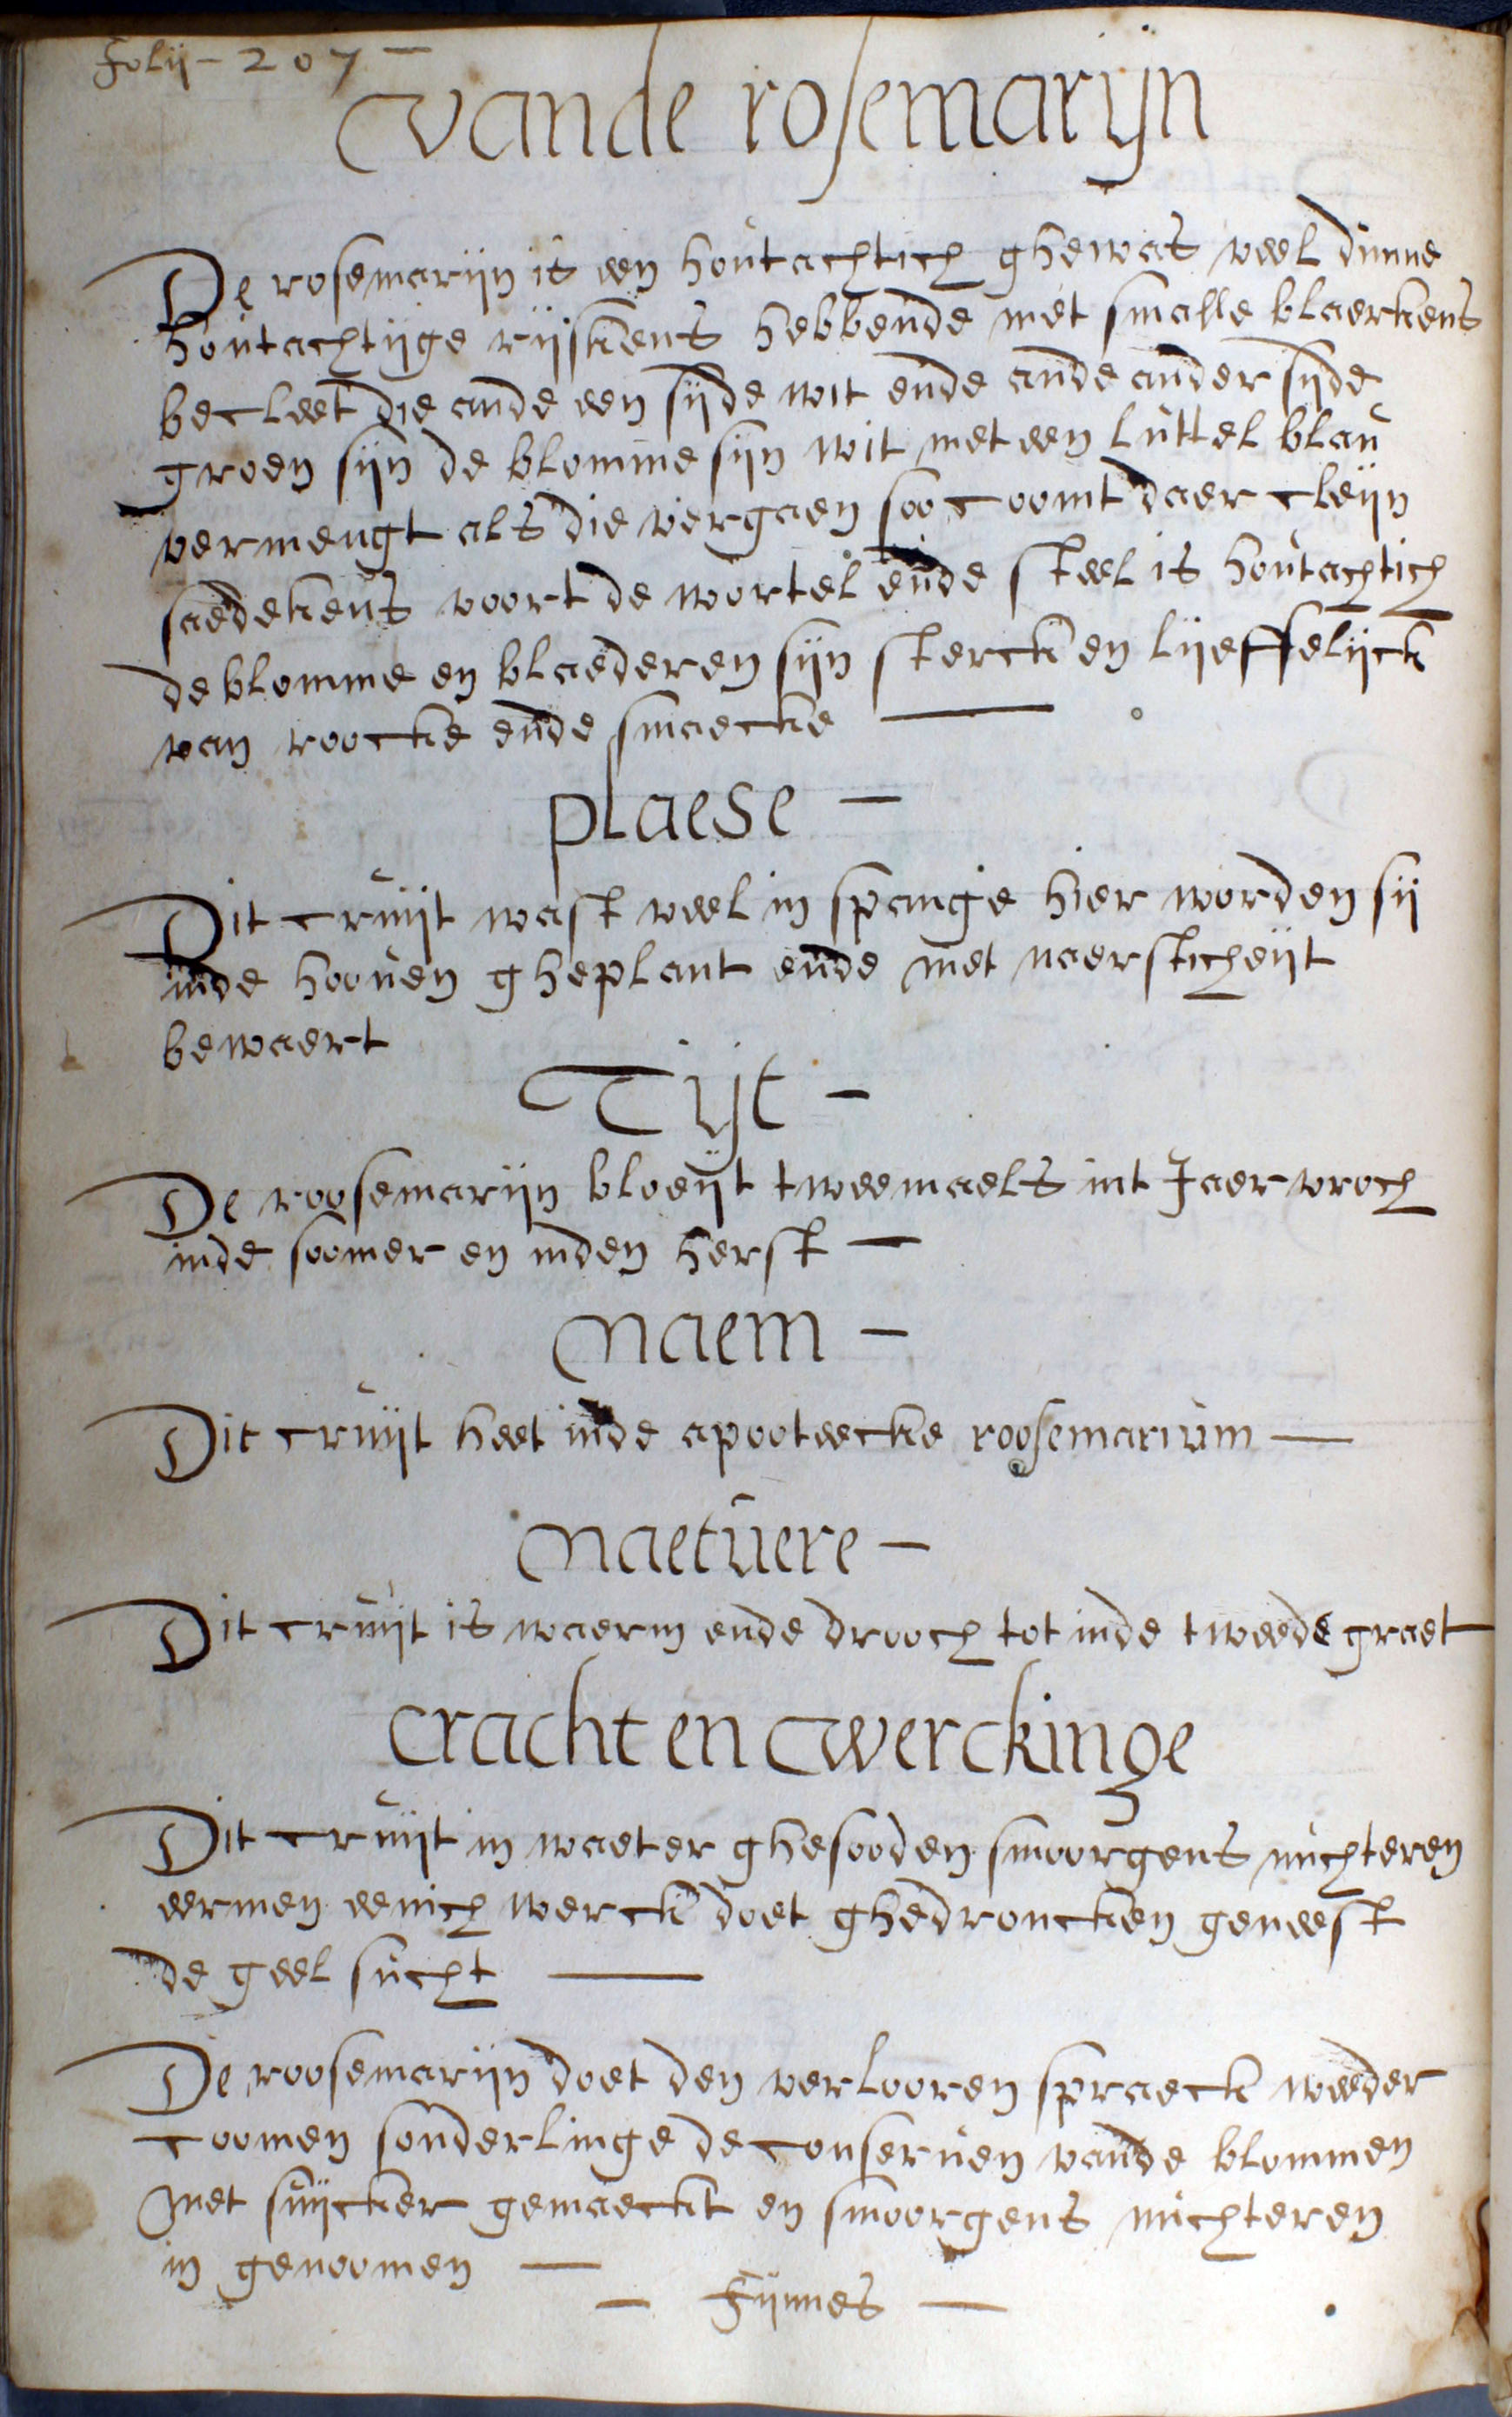 folij - 207 -
vande rosemarijn
De rosemarijn is een houtachtich ghewas veel dunne
houtachtijge rijskens hebbende met smalle blaerkens
becleet die ande een sijde wit ende ande ander sijde
groen sijn de blomme sijn wit met een luttel blau
vermengt als die vergaen soo coomt daer cleijn
saedekens voort de wortel ende steel is houtachtich
de blomme en blaederen sijn sterck en lijeffelijck
van roocke ende smaecke —
plaese -
Dit cruijt wast veel in spangie hier worden sij
inde hooven gheplant ende met naersticheijt
bewaert
Tijt -
De roosemarijn bloeijt tweemaels int Jaer vroch
inde soomer en inden herfst —
Naem -
Dit cruijt heet inde apooteecke roosemarium —
Naetuere -
Dit cruijt is waerm ende drooch tot inde tweede graet
cracht en werckinge
Dit cruijt in waeter ghesooden smoorgens nuchteren
eermen eenich werck doet ghedroncken geneest
de geel sucht —
De roosemarijn doet den verlooren spraeck weeder
coomen sonderlinge de conserven vande blommen
met suijcker gemaeckt en smoorgens nuchteren
in genoomen —
— Fijnnes —